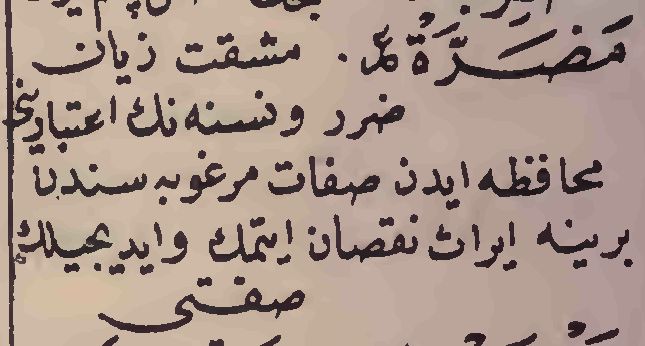 مَضَرَّةٌ مَّر. مشقت زيان
ضرر ونسنه نك اعتبارينى
محافظه ايدن صفات مرغوبه سندن
برينه ايراث نقصان ايتمك وايديجيلك
صفتى